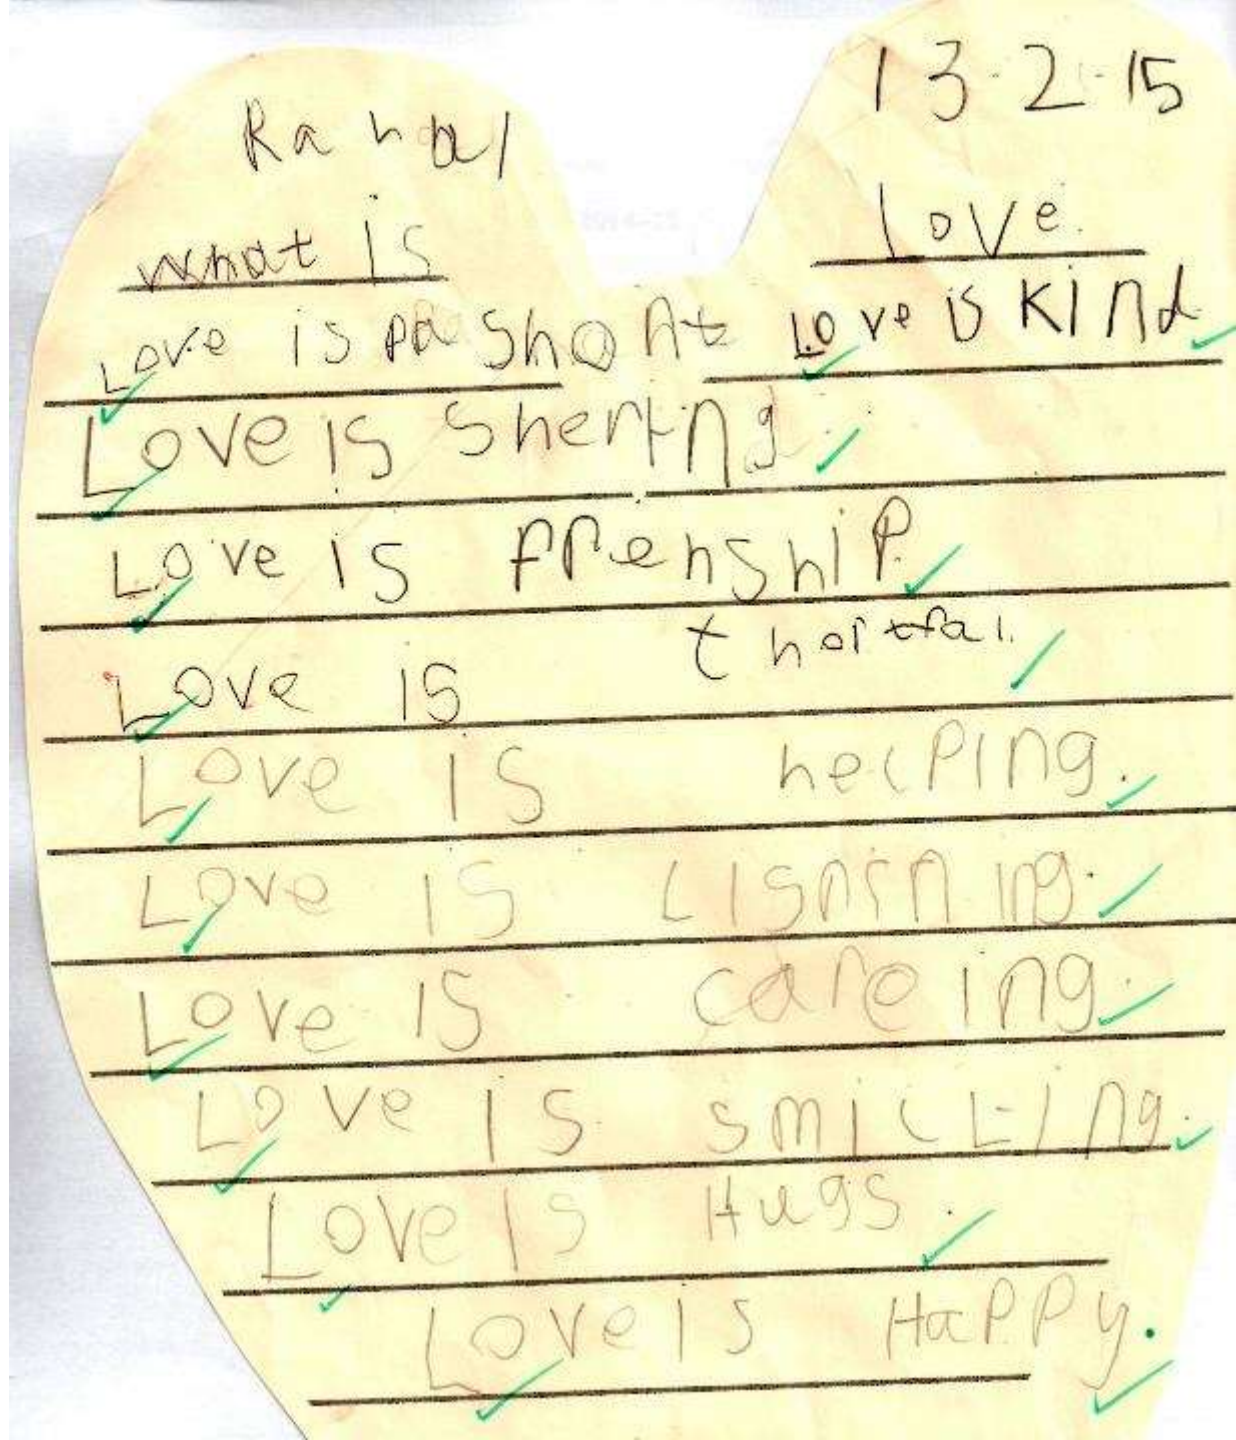 13-2-15
What is Love.
Love is pashont Love is kind
Love is Shering.
Love is frenship.
Love is thortfal.
Love is helping.
Love is Lisning.
Love is careing.
Love is smilLing.
Love is Hugs.
Love is Happy.